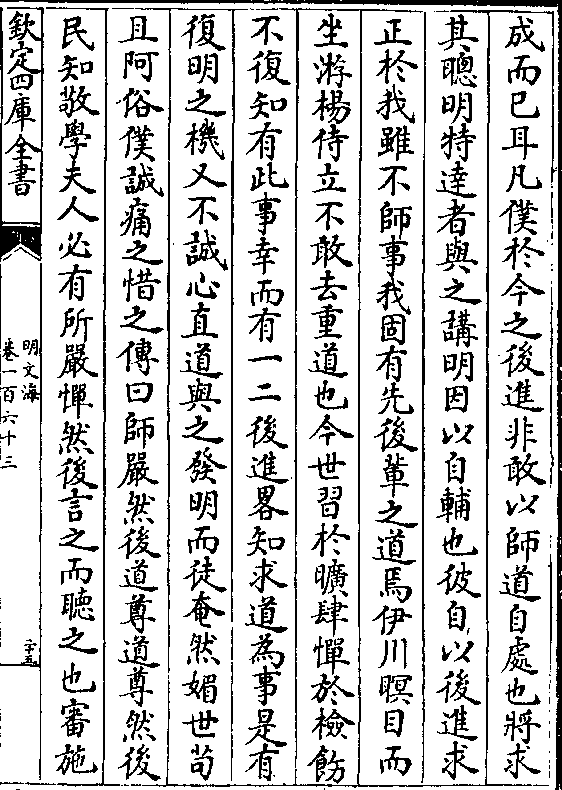 成而已耳凡僕於今之後進非敢以師道自處也將求
其聰明特達者與之講明因以自輔也彼自以後進求
正於我雖不師事我固有先後輩之道焉伊川瞑目而
坐游楊侍立不敢去重道也今世習於曠肆憚於檢飭
不復知有此事幸而有一二後進畧知求道為事是有
復明之機又不誠心直道與之發明而徒奄然媚世茍
且阿俗僕誠痛之惜之傳曰師嚴然後道尊道尊然後
民知敬學夫人必有所嚴憚然後言之而聽之也審施
欽定四庫全書
明文海
卷一百六十三
二十五